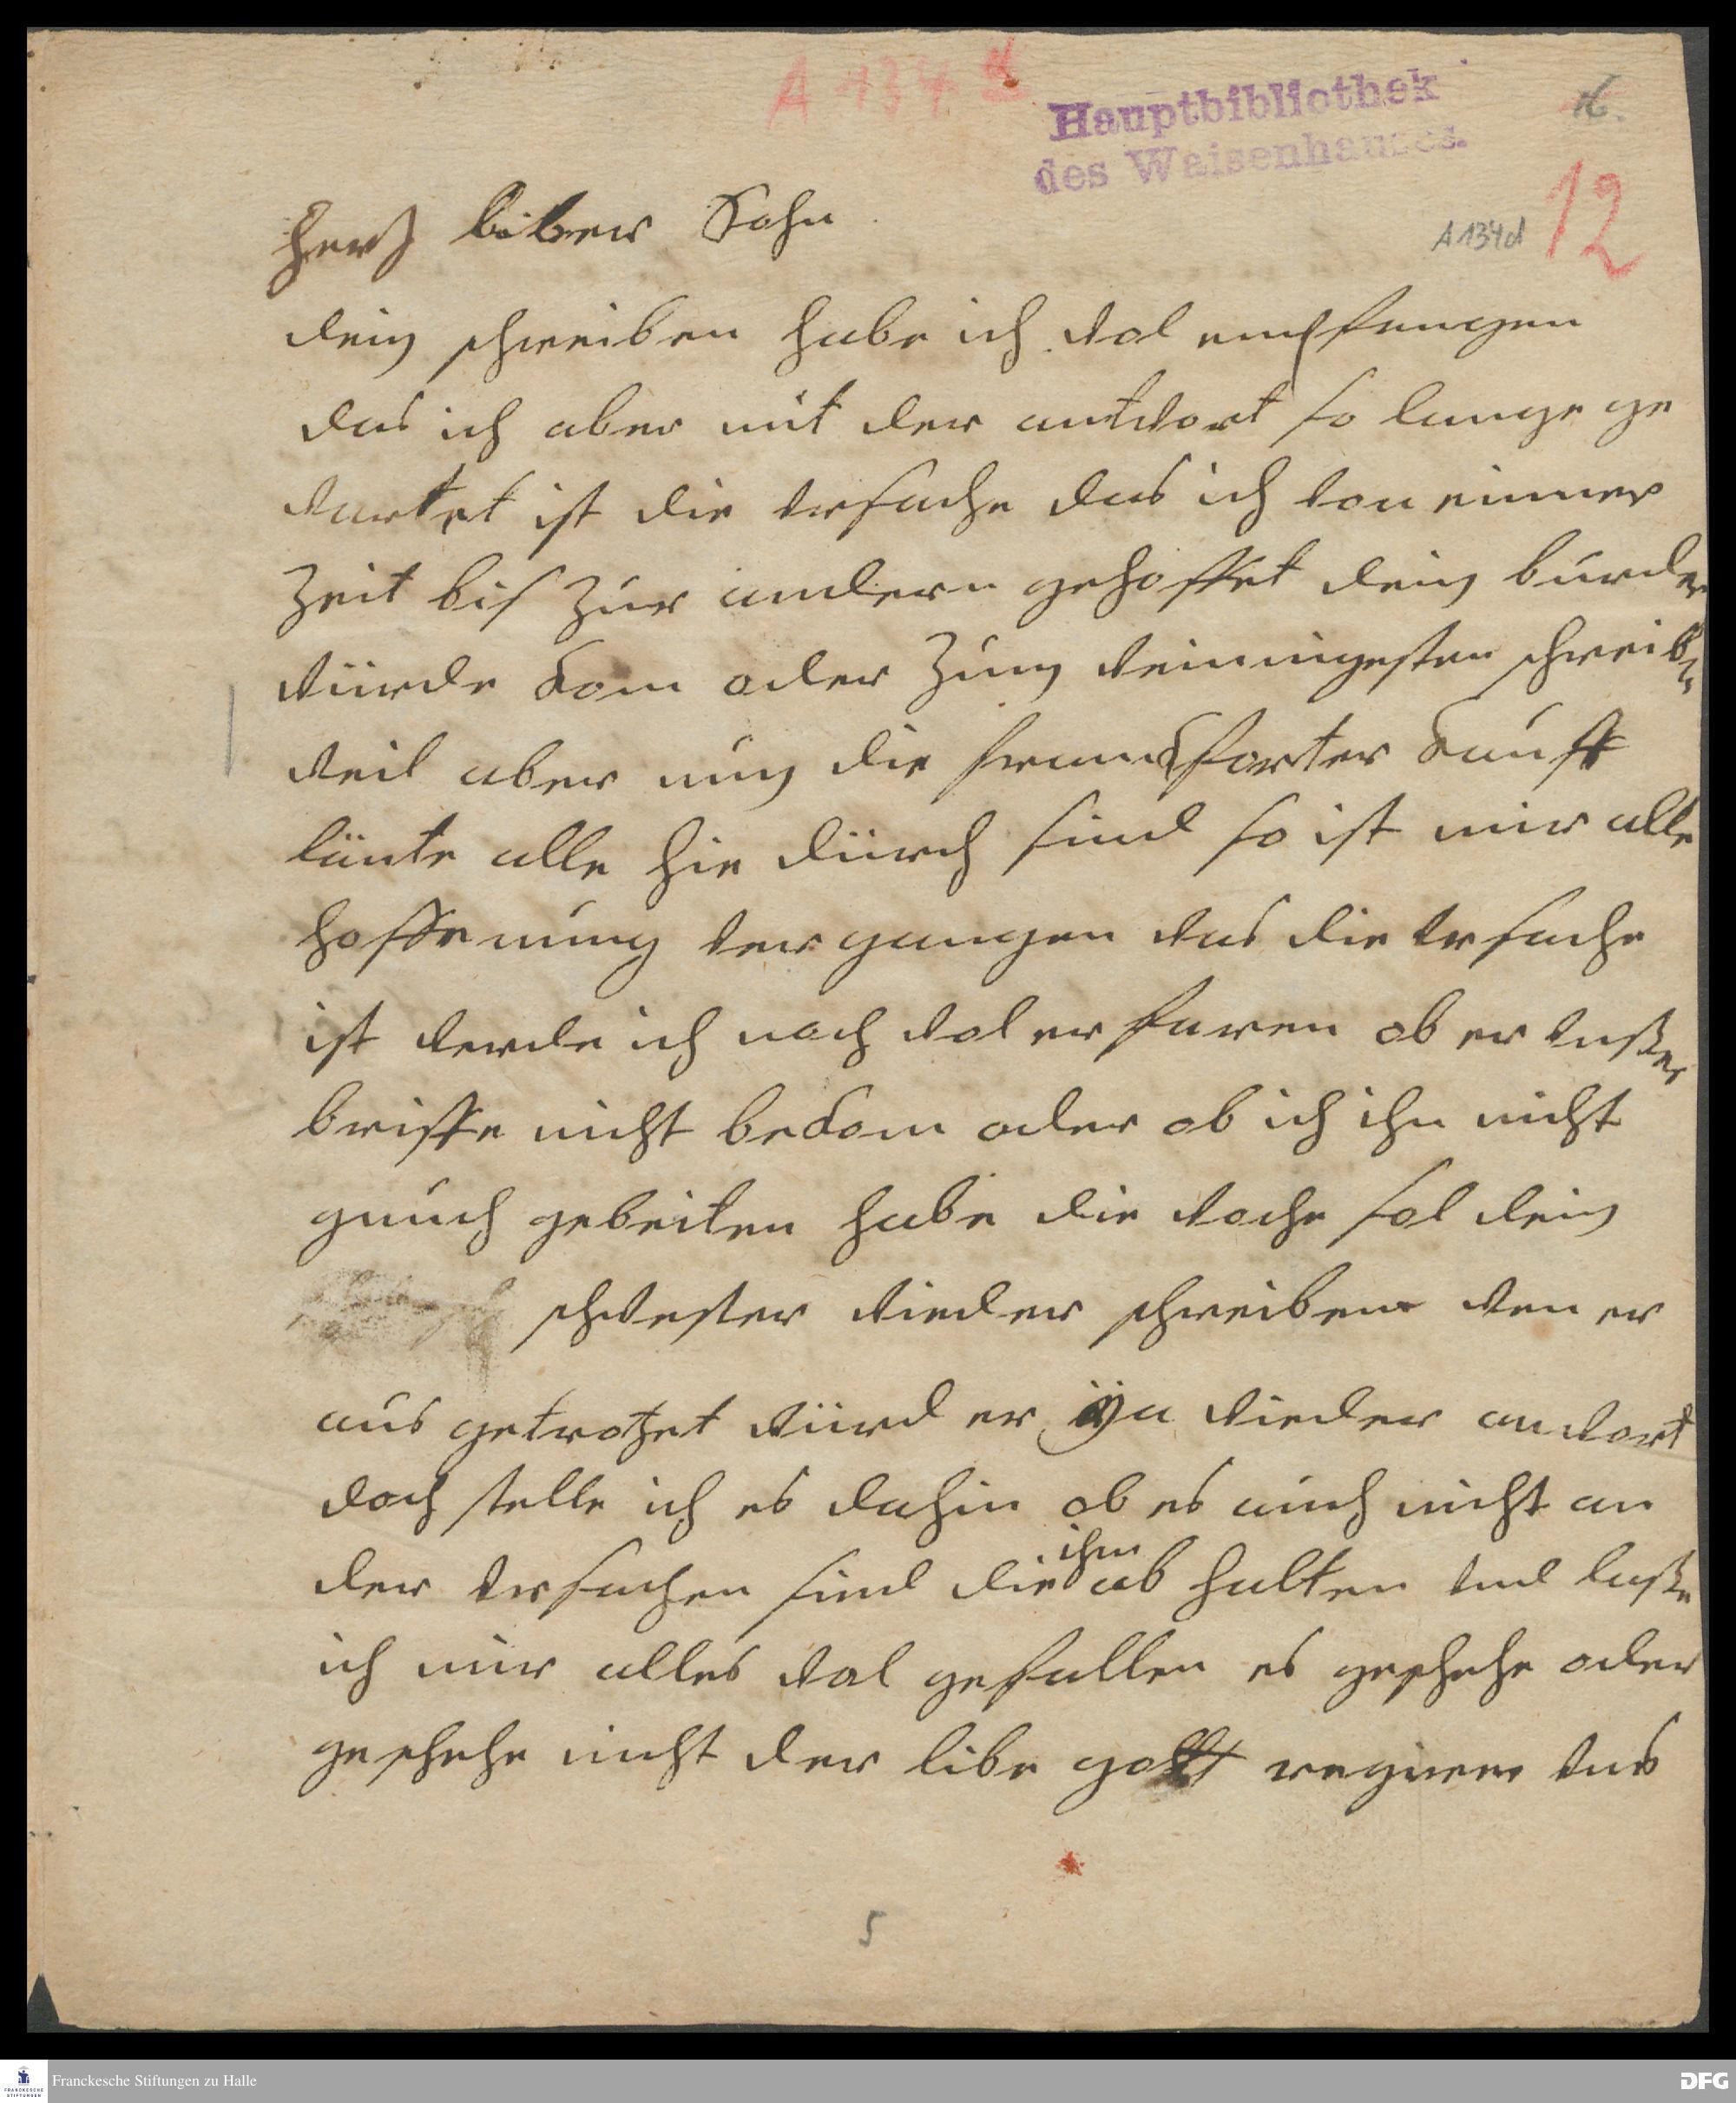 A 134 d
Hauptbibliothek
des Waisenhauses.
16.
12
A 134d
hertz liber Sohn
dein schreiben habe ich wol empfangen
das ich aber mit der antwort so lange ge
wartet ist die vrsache das ich von einner
Zeit bis Zur andern gehoffet dein bruder
würde kom oder Zum weinnigesten schreiben
weil aber nun die franckforter kauff
läute alle hie dürch sind so ist mir alle
hoffenung ver gangen was die vrsache
ist werde ich noch wol er faren ob er vnßer
briffe nicht bekom oder ob ich ihn nicht
gnuch gebeiten habe die woche sol dein
schwester wieder schreiben wen er
aus getrotzet würd er ÿa wieder andwort
doch stelle ich es dahin ob es auch nicht an
ihm
der vrsachen sind die ab halten vnd laße
ich mir alles wol gefallen es geschehe oder
geschehe nicht der libe gott regiere vns
5
Franckesche Stiftungen zu Halle
DFG